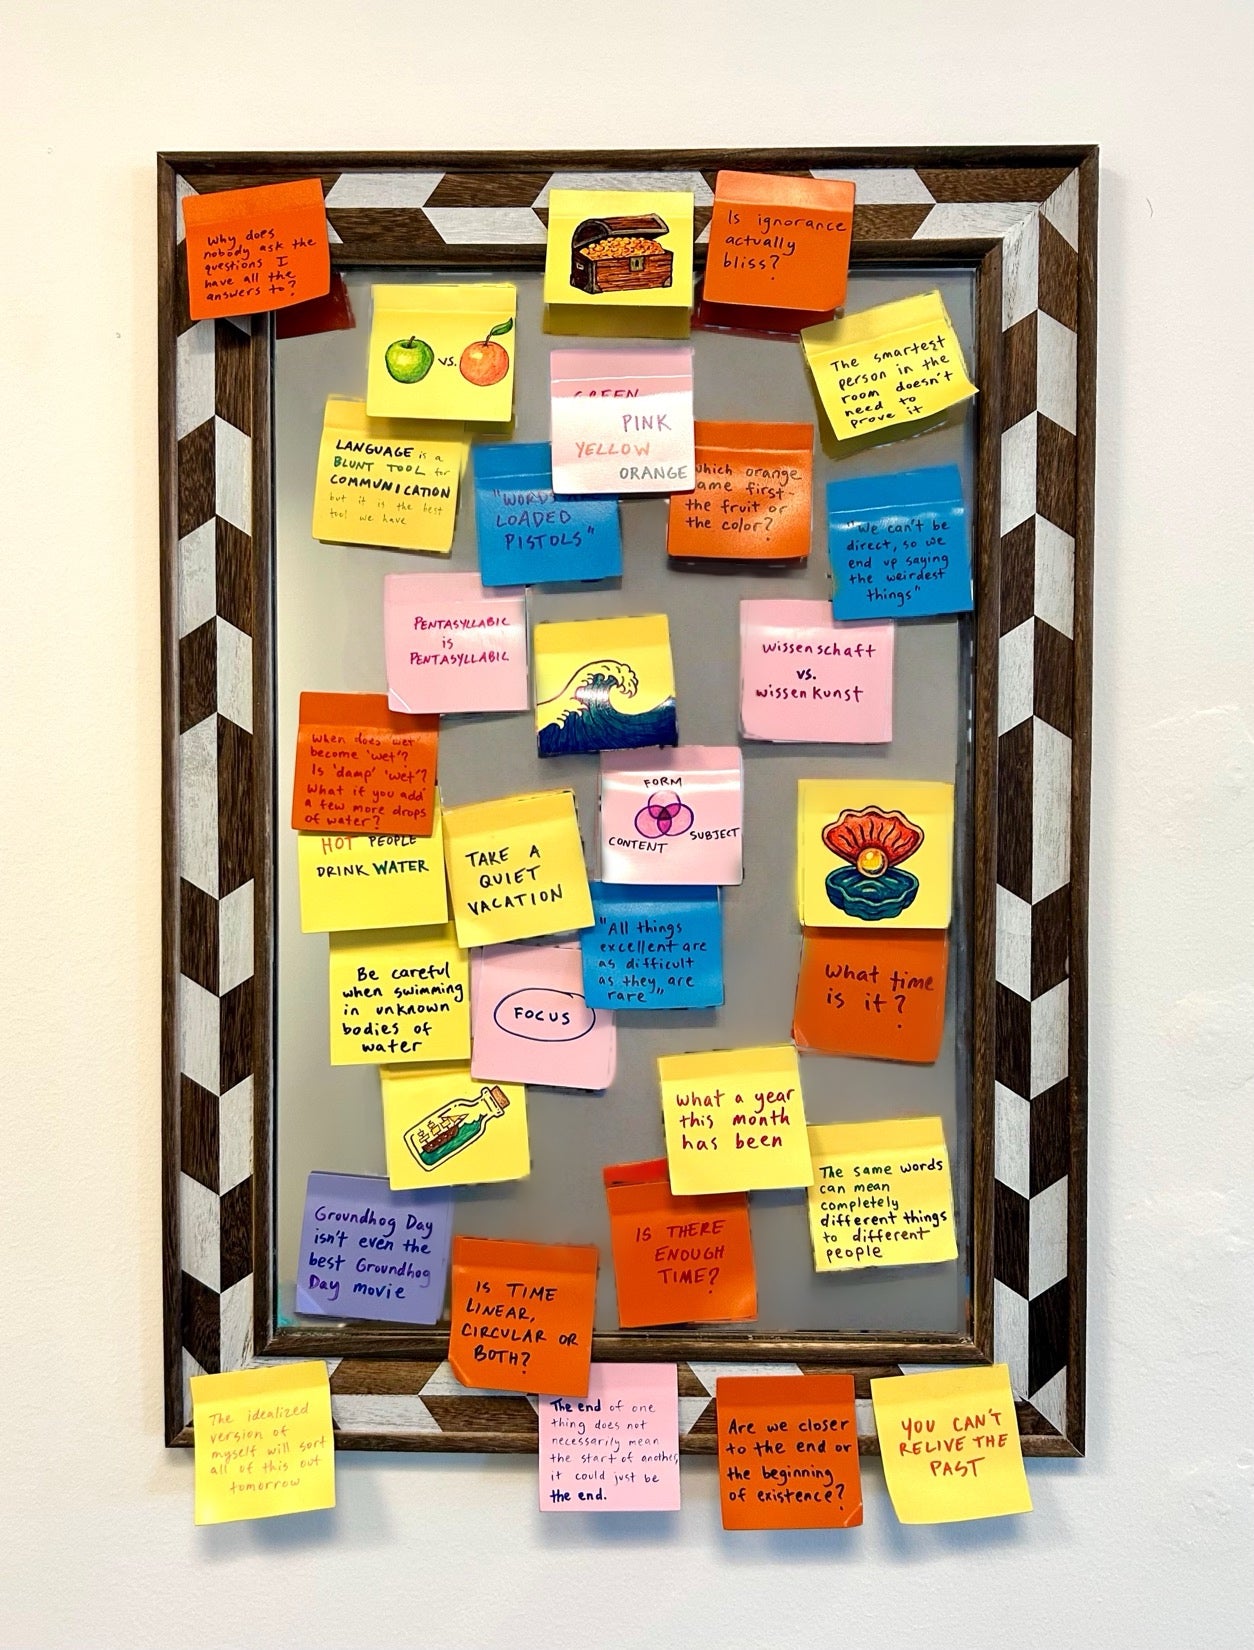 Why does
nobody ask the
questions I
have all the
answers to?
Is ignorance
actually
bliss?
vs.
The smartest
person in the
room doesn't
need to
prove it
GREEN
PINK
YELLOW
ORANGE
LANGUAGE is a
BLUNT TOOL for
COMMUNICATION
but it is the best
tool we have
"WORDS
LOADED
PISTOLS"
which orange
came first-
the fruit or
the color?
"We can't be
direct, so we
end up saying
the weirdest
things"
PENTASYLLABIC
is
PENTASYLLABIC
wissenschaft
vs.
wissenkunst
When does 'wet'
become 'wet'?
Is 'damp' 'wet'?
What if you add
a few more drops
of water?
HOT PEOPLE
DRINK WATER
TAKE A
QUIET
VACATION
FORM
CONTENT
SUBJECT
"All things
excellent are
as difficult
as they are
rare"
Be careful
when swimming
in unknown
bodies of
water
FOCUS
What time
is it?
what a year
this month
has been
The same words
can mean
completely
different things
to different
people
Groundhog Day
isn't even the
best Groundhog
Day movie
IS THERE
ENOUGH
TIME?
IS TIME
LINEAR,
CIRCULAR OR
BOTH?
The idealized
version of
myself will sort
all of this out
tomorrow
The end of one
thing does not
necessarily mean
the start of another,
it could just be
the end.
Are we closer
to the end or
the beginning
of existence?
YOU CAN'T
RELIVE THE
PAST